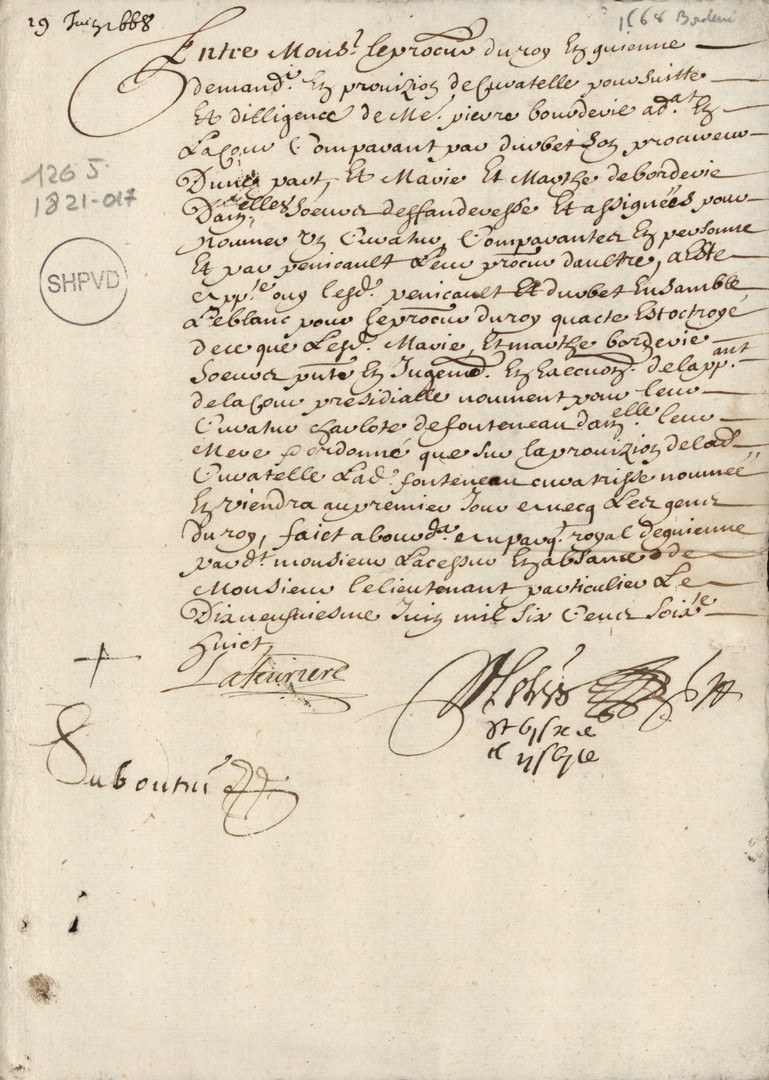 19 Juin 1668
1568 Borderi
Entre Monsr. le procur du roy En guienne
demandr. En provizion de Curatelle poursuitte
Et dilligence de Me. pierre bourderie adat. En
La Cour Comparant par durbet son procureur
D'une part, Et Marie Et Marthe de borderie
Dam.elles Soeurs deffanderesse Et assignées pour
Nommer Un Curatur, Comparantes En personne
Et par penicault Leur procur d'aultre, a Este
app.le ouy lesd. penicault Et durbet Ensamble
Leblanc pour le procur du roy qu acte Est octroyé
de ce que Lesd. Marie, Et marthe borderie
Soeurs pnte En Jugemt. En la app.ant
de la Cour presidialle nomment pour leur
Curatur charlote de fonteneau dam.elle leur
Mere ordonné que sur la provizion de lad
Curatelle Lad. fonteneau curatrisse nommée
En viendra au premier Jour avecq Les gens
du roy, faict a bourd.a en parq. royal de guienne
pard.t monsieur Lacessur En absance de
Monsieur le lieutenant particulier Le
Dix neufviesme Juin mil six Cens soix.te
huict
1265
1821-017
SHPVD
Laferriere
Duboutin